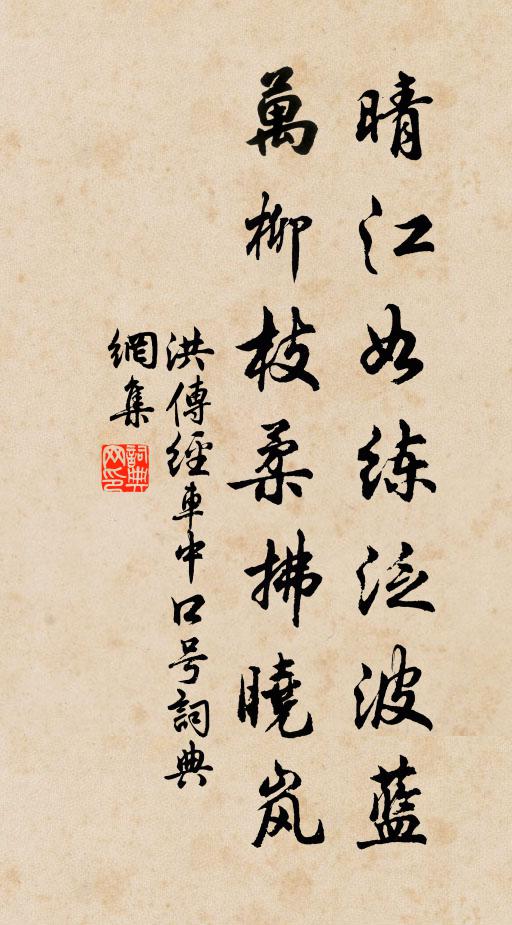 晴江如练泛波蓝
萬柳枝柔拂曉岚
洪傳經車中口号詞典
網集
詞典网印